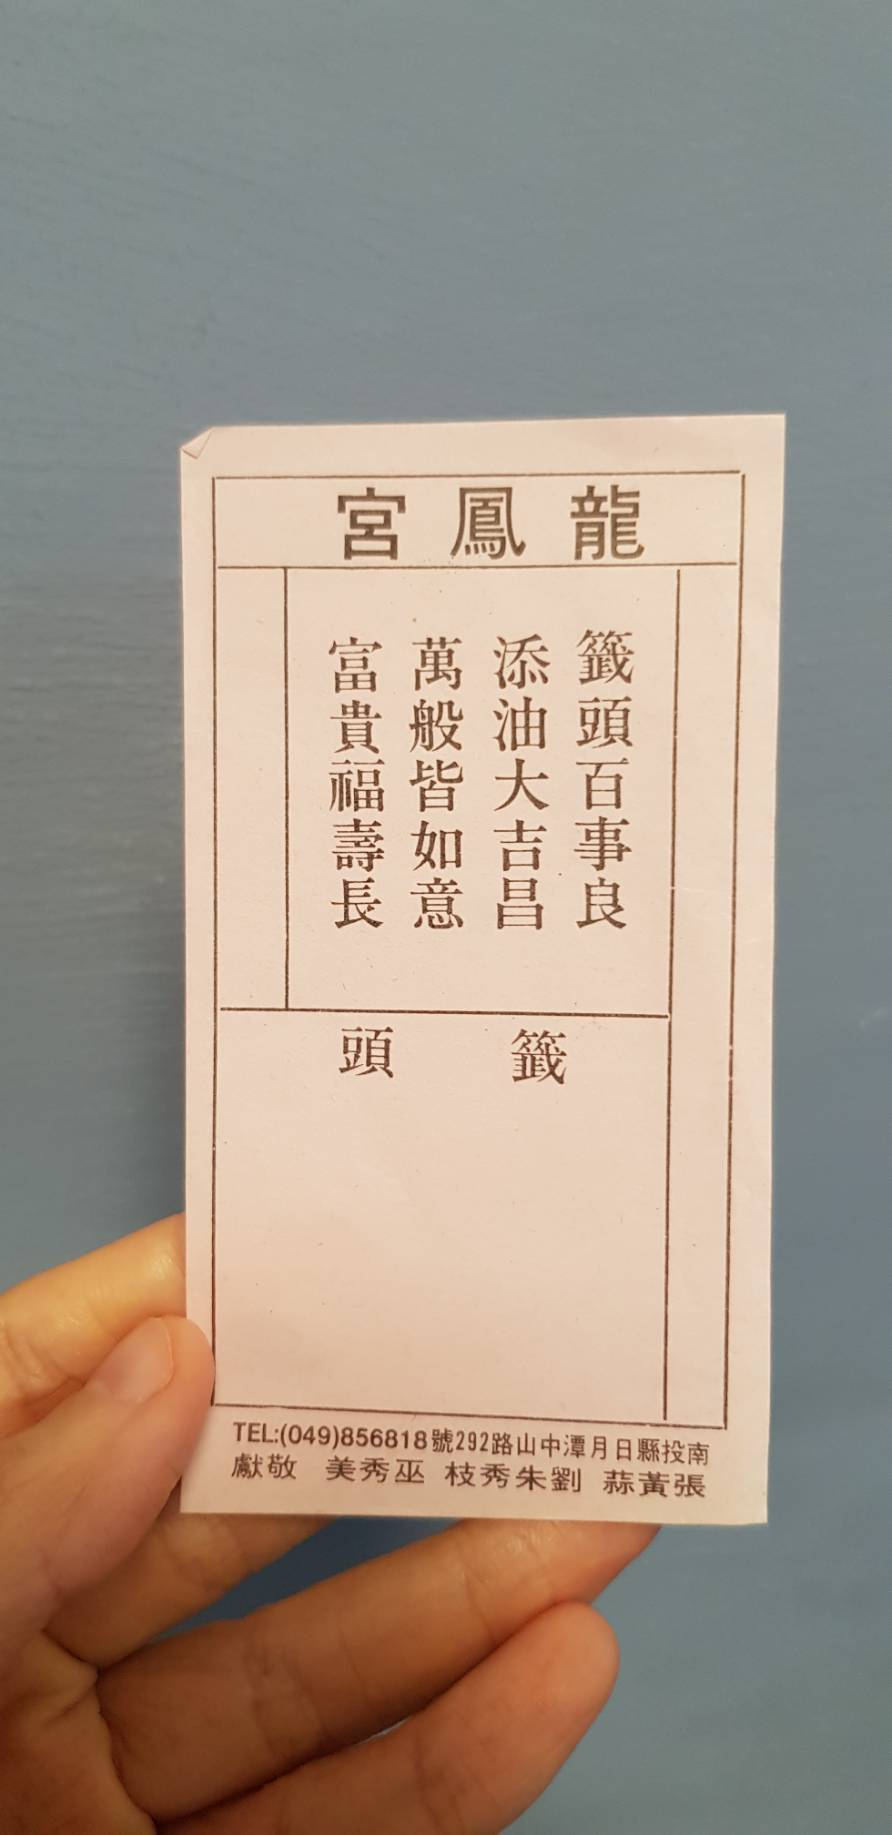 龍鳳宮
籤頭百事良
添油大吉昌
萬般皆如意
富貴福壽長
籤頭
南投縣日月潭中山路292號TEL:(049)856818
張黃蒜 劉朱秀枝 巫秀美 敬獻